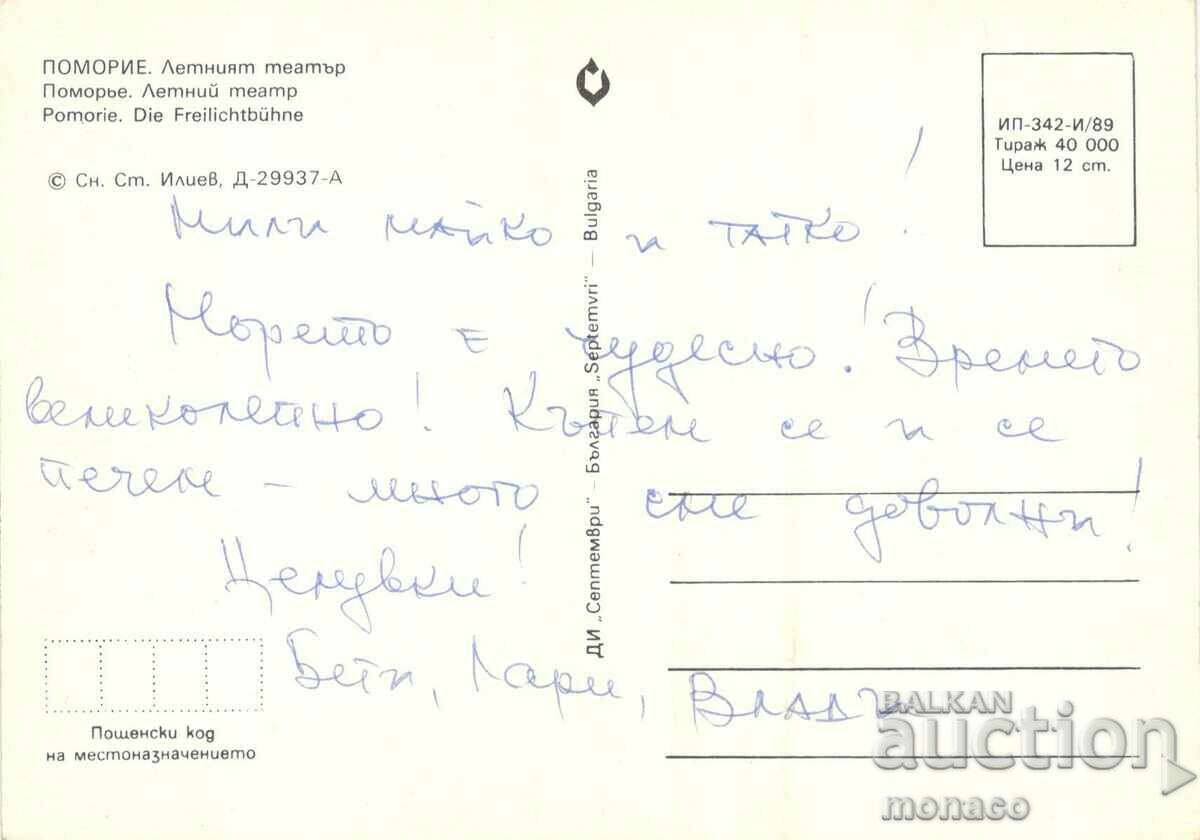 ПОМОРИЕ. Летният театър
Поморье. Летний театр
Pomorie. Die Freilichtbühne
© Сн. Ст. Илиев, Д-29937-А
ИП-342-И/89
Тираж 40 000
Цена 12 ст.
Мили майко и татко!
Морето е чудесно! Времето
великолепно! Къпем се и се
печем – много сме доволни!
Целувки!
Бети, Лари, Влади
ДИ „Септември" – България „Septemvri" – Bulgaria
Пощенски код
на местоназначението
BALKAN
auction
monaco